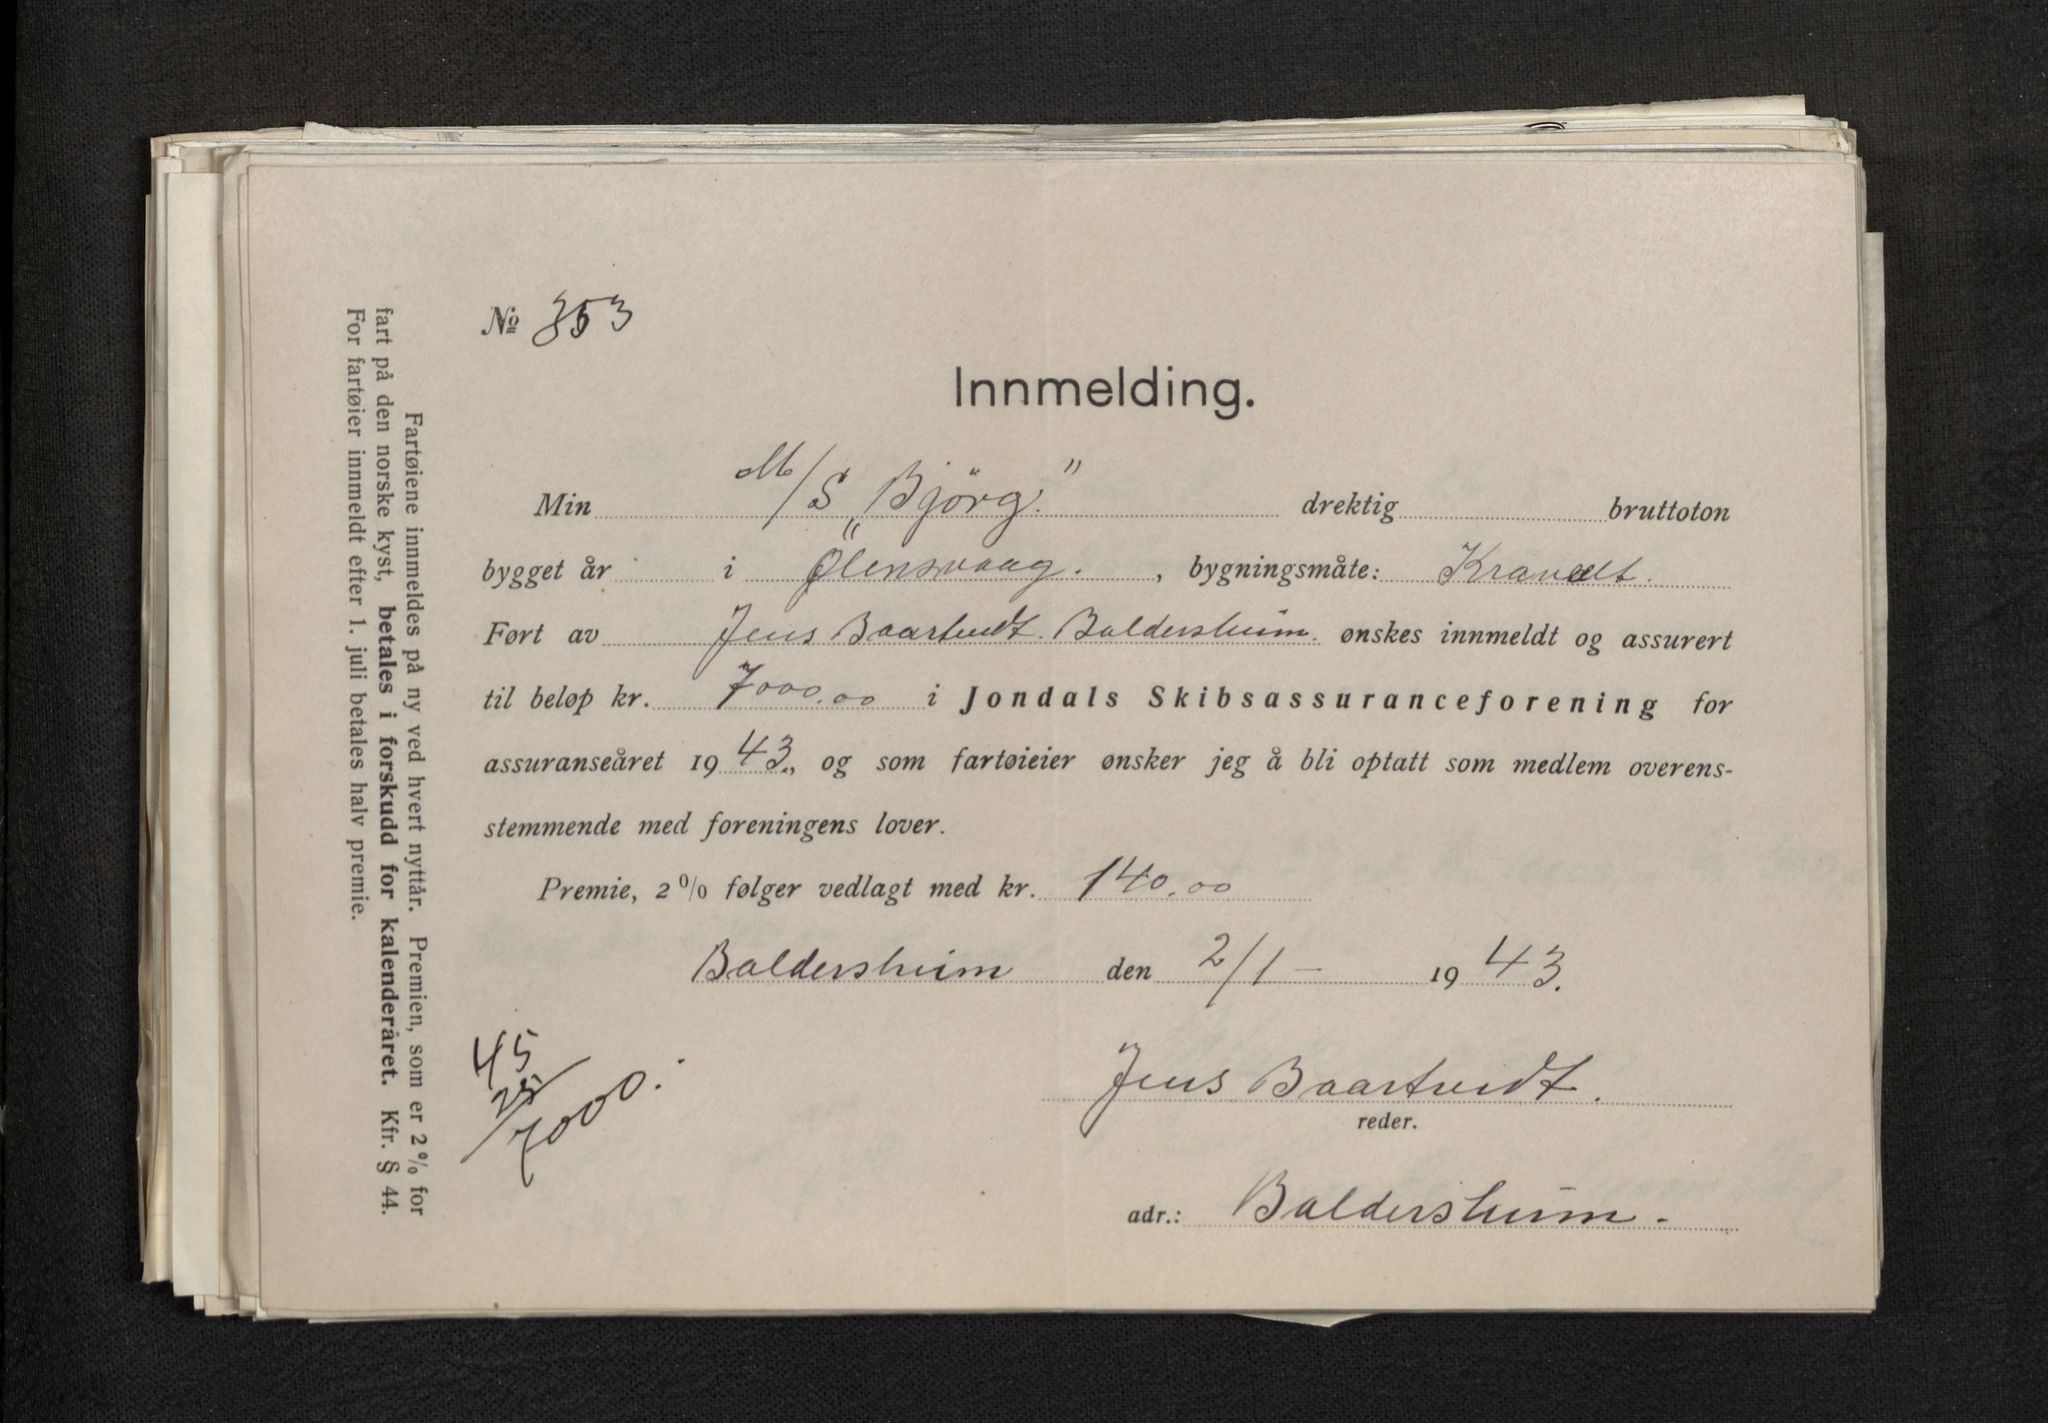 № 353
Innmelding.
Min M/S „Björg.” drektig bruttoton
bygget år i Ølensvaag. , bygningsmåte: Kravelt.
Ført av Jens Baartvedt. Baldersheim. ønskes innmeldt og assurert
til beløp kr. 7000.00 i Jondals Skibsassuranceforening for
assuranseåret 1943., og som fartøieier ønsker jeg å bli optatt som medlem overens-
stemmende med foreningens lover.
Premie, 2% følger vedlagt med kr. 140.00
Baldersheim den 2/1 – 1943.
Jens Baartvedt.
reder.
adr.: Baldersheim.
45
25/7000.
Fartøiene innmeldes på ny ved hvert nyttår. Premien, som er 2% for
fart på den norske kyst, betales i forskudd for kalenderåret. Kfr. § 44.
For fartøier innmeldt efter 1. juli betales halv premie.